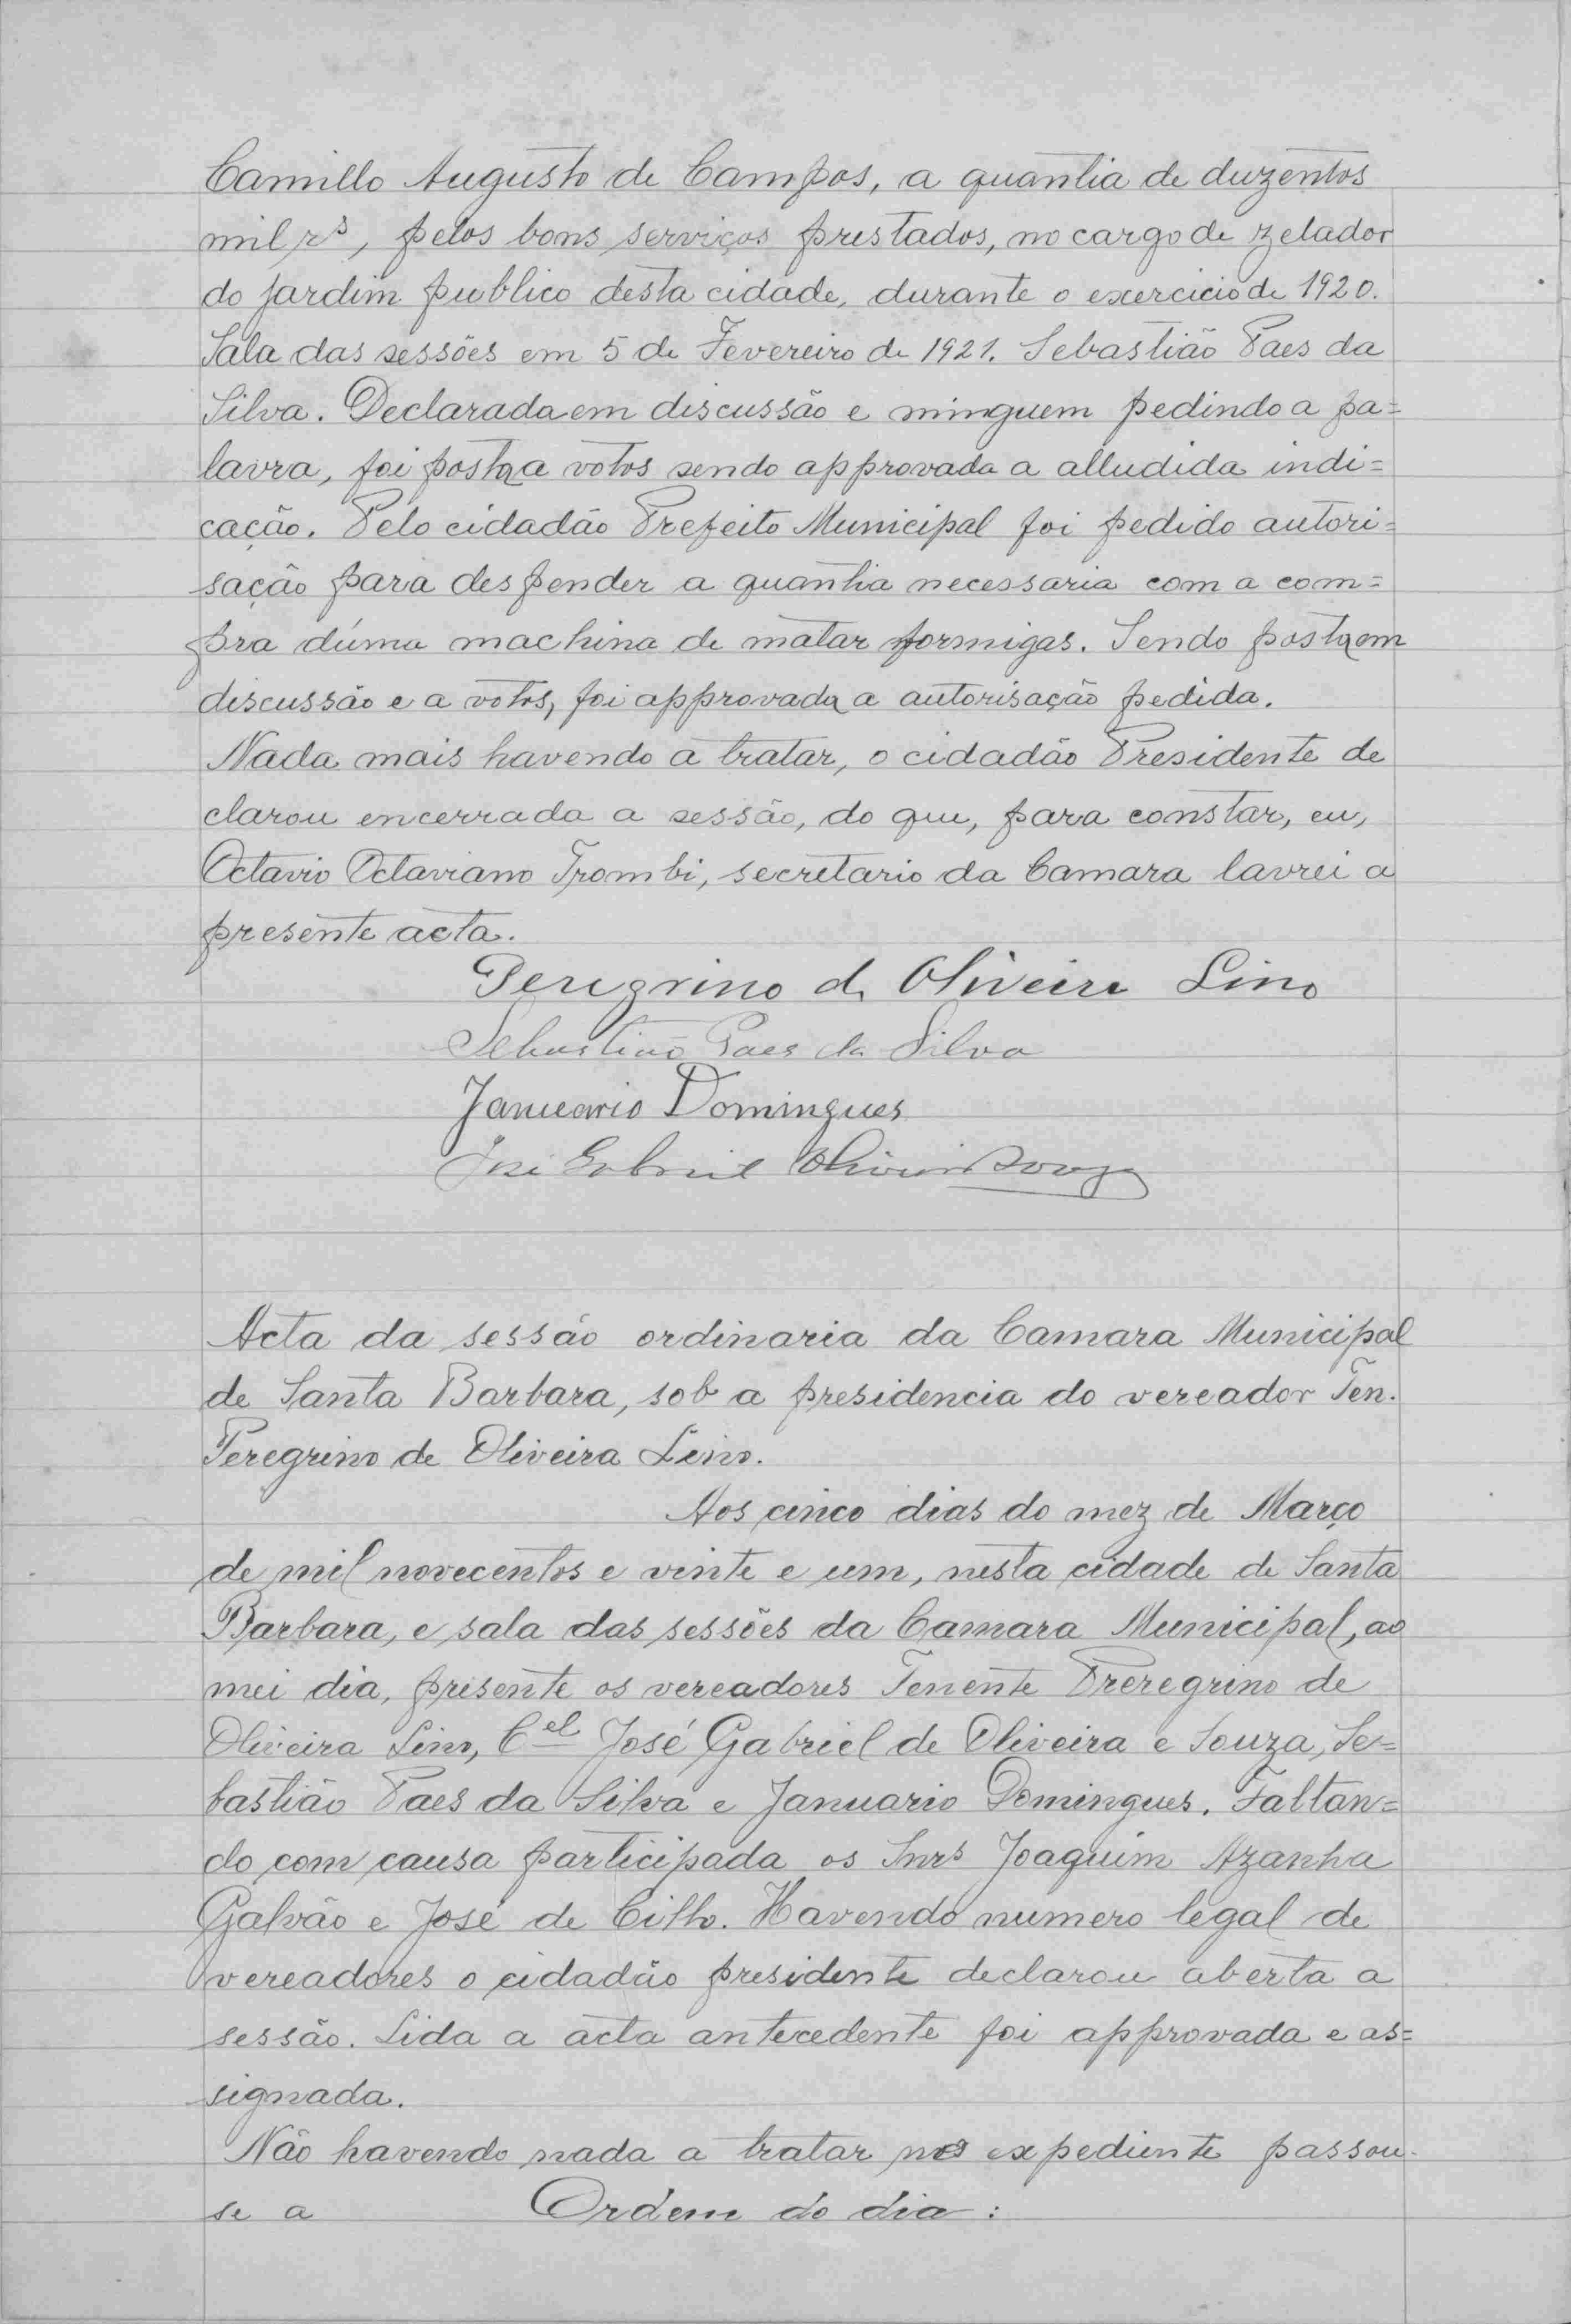 Camillo Augusto de Campos, a quantia de duzentos
mil rs, pelos bons serviços prestados, no cargo de zelador
do jardim publico desta cidade, durante o exercicio de 1920.
Sala das sessões em 5 de Fevereiro de 1921. Sebastião Paes da
Silva. Declarada em discussão e ninguem pedindo a pa=
lavra, foi posta a votos sendo approvada a alludida indi=
cação. Pelo cidadão Prefeito Municipal foi pedido autori=
sação para despender a quantia necessaria com a com=
pra dúma machina de matar formigas. Sendo posta em
discussão e a votos, foi approvada a autorisação pedida.
Nada mais havendo a tratar, o cidadão Presidente de
clarou encerrada a sessão, do que, para constar, eu,
Octavio Octaviano Trombi, secretario da Camara lavrei a
presente acta.
Peregrino de Oliveira Lino
Sebastião Paes da Silva
Januario Domingues
José Gabriel Oliveira Souza
Acta da sessão ordinaria da Camara Municipal
de Santa Barbara, sob a presidencia do vereador Ten.
Peregrino de Oliveira Lino.
Aos cinco dias do mez de Março
de mil novecentos e vinte e um, nesta cidade de Santa
Barbara, e sala das sessões da Camara Municipal, ao
mei dia, presente os vereadores Tenente Preregrino de
Oliveira Lino, Cel José Gabriel de Oliveira e Souza, Se=
bastião Paes da Silva e Januario Domingues. Faltan=
do com causa participada os Snrs Joaquim Azanha
Galvão e José de Cillo. Havendo numero legal de
vereadores o cidadão presidente declarou aberta a
sessão. Lida a acta antecedente foi approvada e as=
signada.
Não havendo nada a tratar no expediente passou-
se a Ordem do dia: